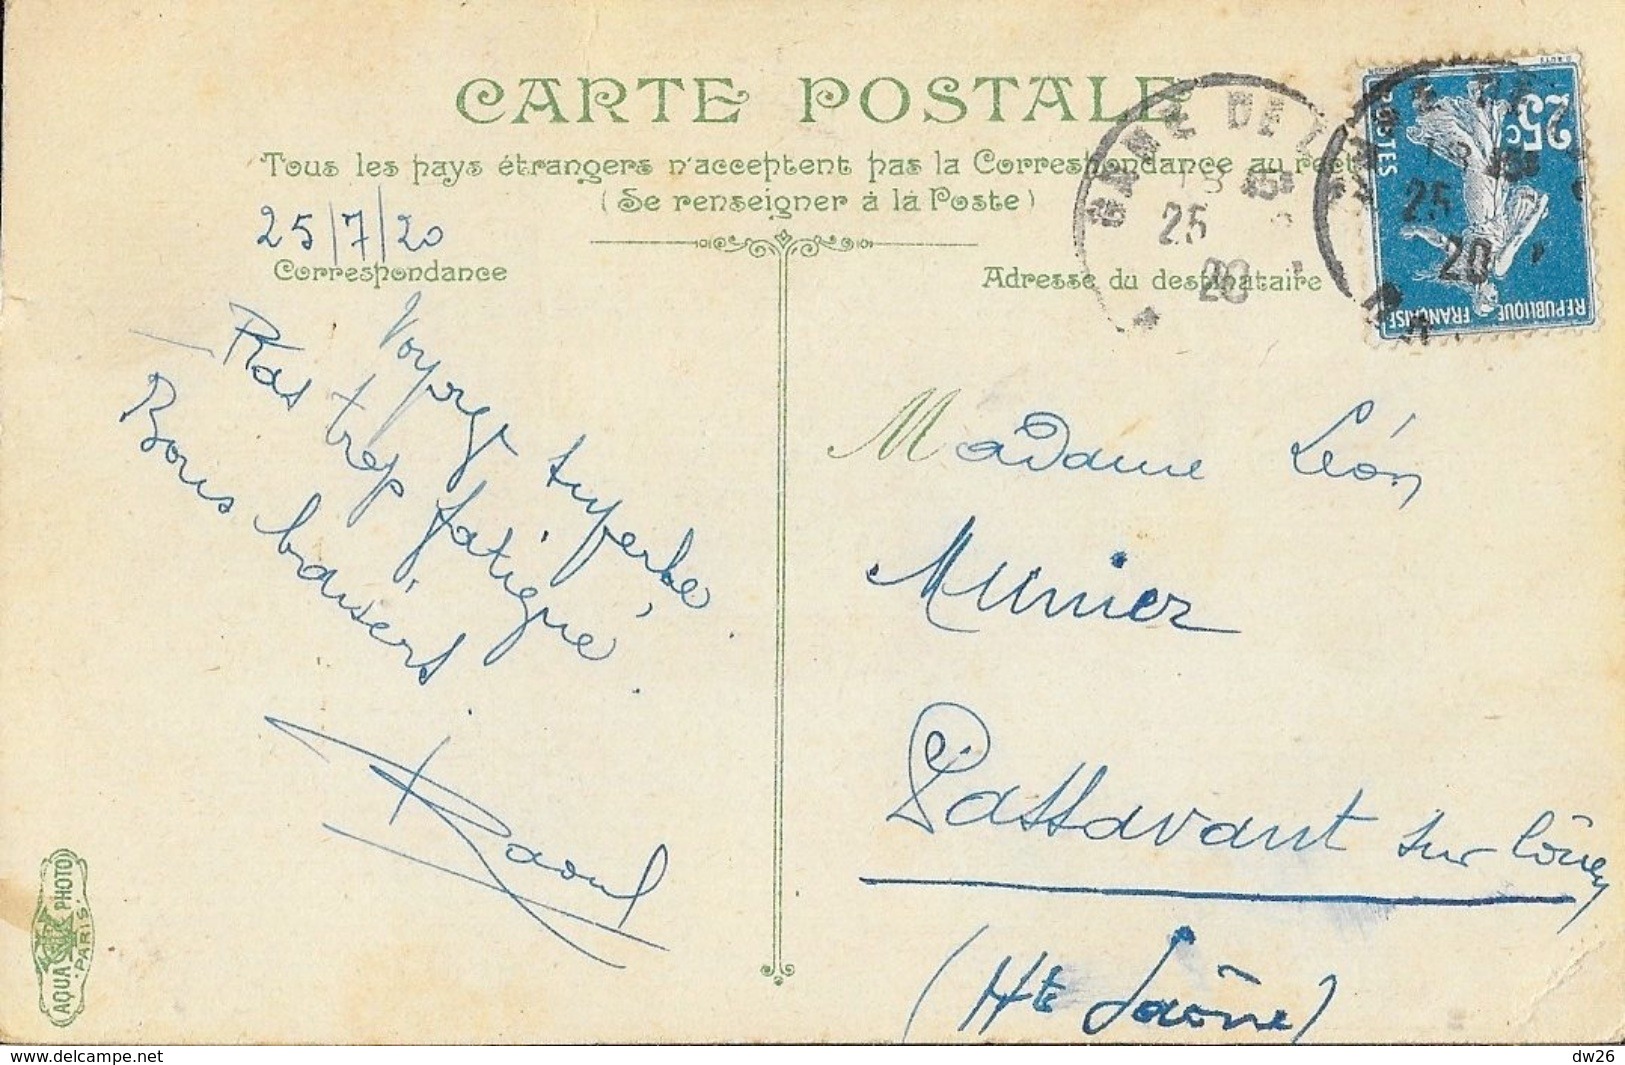 CARTE POSTALE
Tous les pays étrangers n'acceptent pas la Correspondance au rect
(Se renseigner à la Poste)
25/7/20
Correspondance
Adresse du destinataire
Voyage superbe.
Pas trop fatigué.
Bons baisers.
Raoul
Madame Léon
Munier
Passavant sur Côney
(Hte Saône)
GARE DE L
25
20
25c
POSTES
REPUBLIQUE FRANÇAISE
25
20
AQUA PHOTO
PARIS
www.delcampe.net
dw26